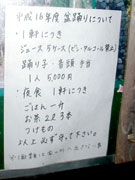 平成16年度 盆踊りについて
・1軒につき
ジュース5ケース(ビール,アルコール禁止)
踊り子・音頭 手当
1人 5,000円
・夜食 1軒につき
ごはん一升
お茶 2,3本
つけもの
以上必ず守って下さい。